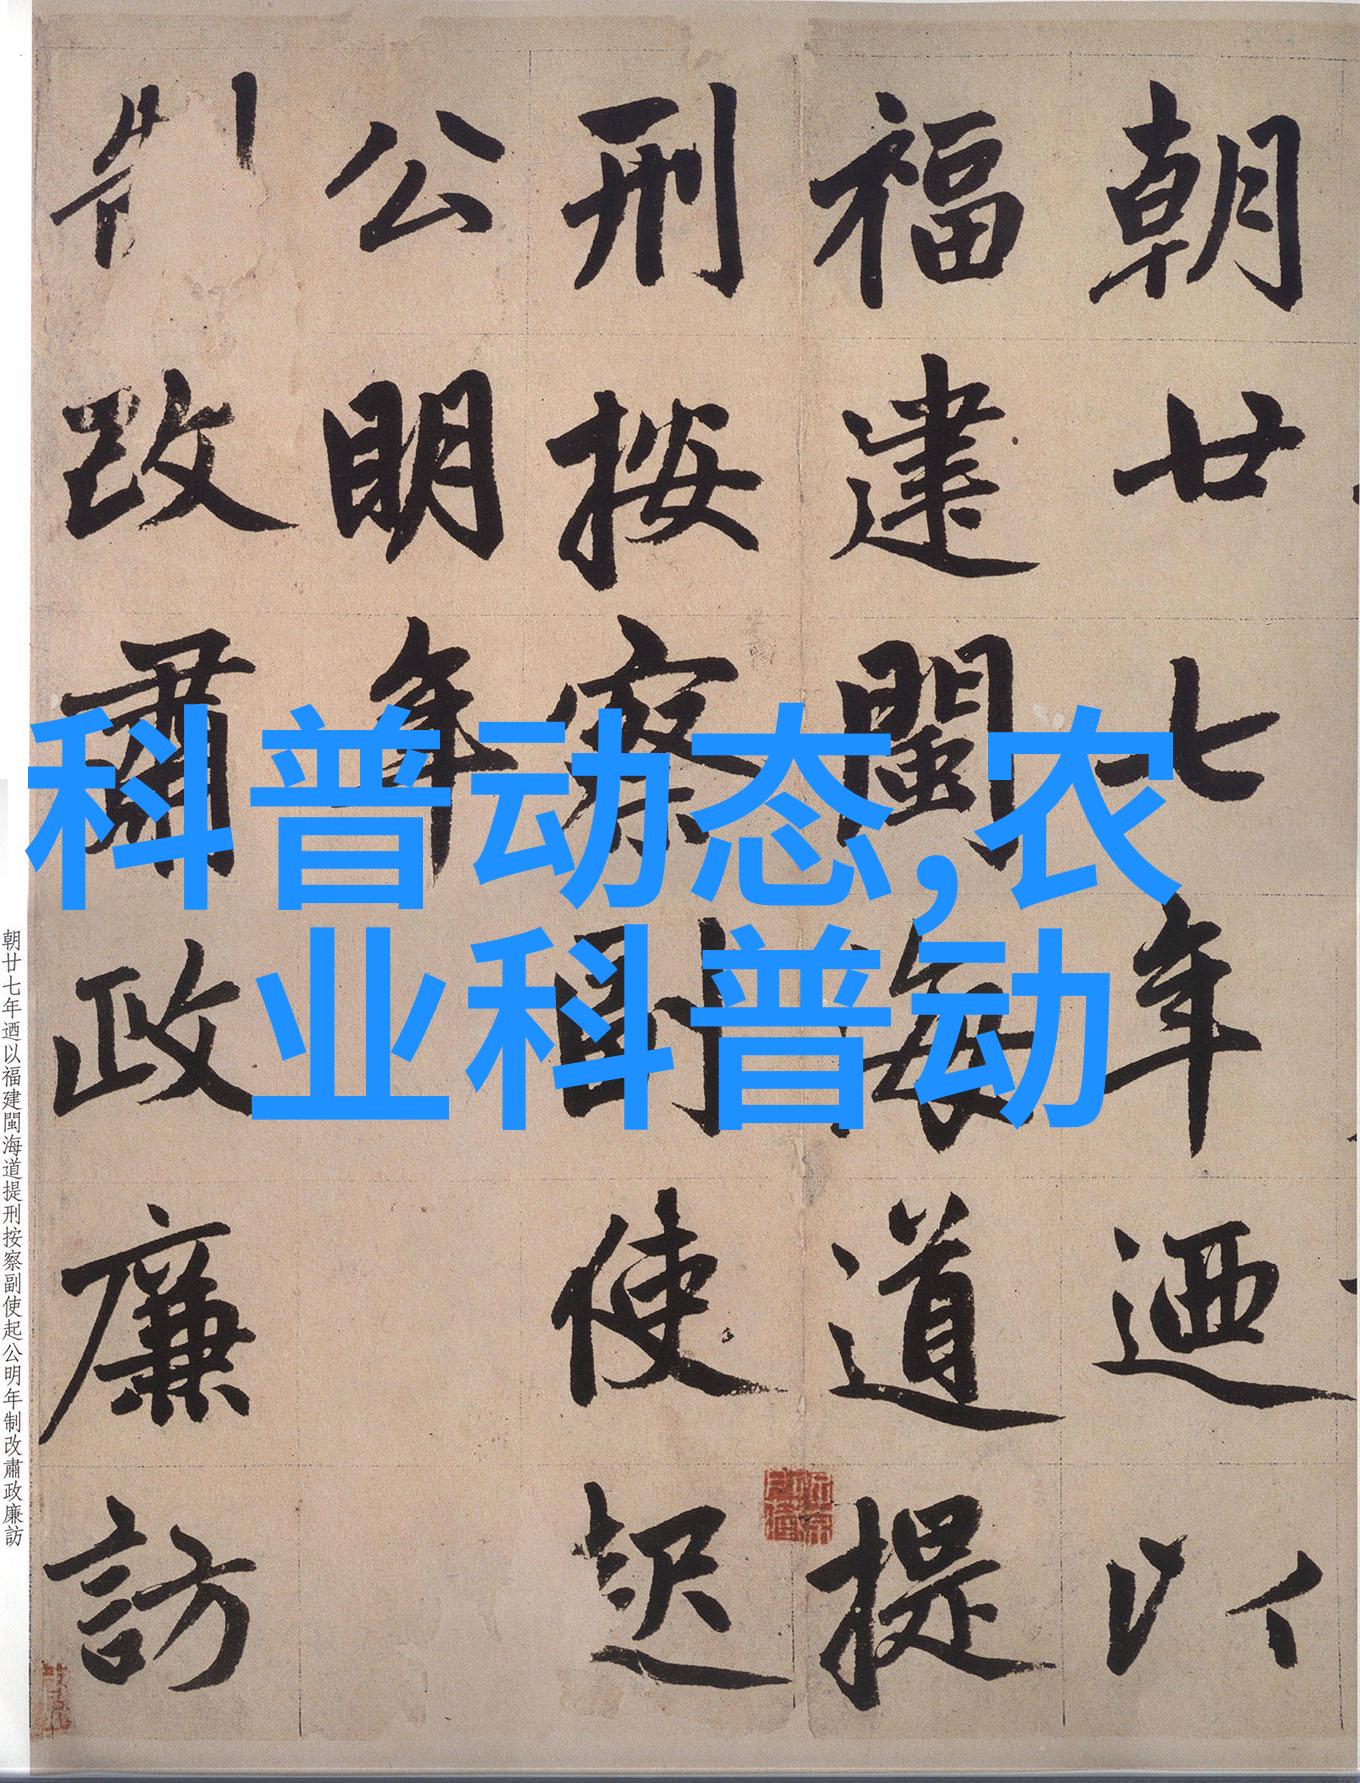 朝廿七年迺以
福建閩海道提
刑按察副使起
公明年
制改肅政廉訪
科普动态,农
业科普动
朝廿七年迺以福建閩海道提刑按察副使起公明年制改肅政廉訪